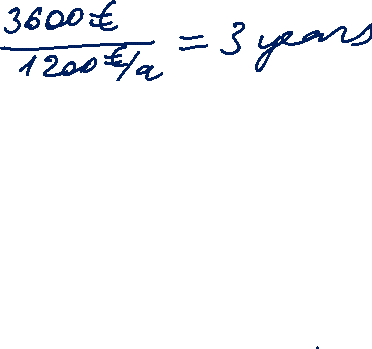 3600€
1200€/a = 3 years